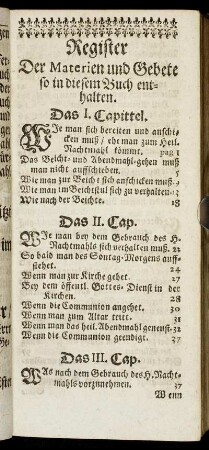 Register
Der Materien und Gebete
so in diesem Buch ent-
halten.
Das I. Capittel.
Wie man sich bereiten und anschi-
cken muß / ehe man zum Heil.
Nachtmahl kömmt. pag. 1
Das Beicht- und Abendmahl-gehen muß
man nicht auffschieben. 5
Wie man zur Beicht sich anschicken muß. 9
Wie man im Beichtstul sich zu verhalten.
Wie nach der Beichte. 18
Das II. Cap.
Wie man bey dem Gebrauch des H.
Nachtmahls sich verhalten muß. 22
So bald man des Sontag-Morgens auff-
stehet. 24
Wenn man zur Kirche gehet. 27
Bey dem öffentl. Gottes-Dienst in der
Kirchen. 28
Wenn die Communion angehet. 30
Wenn man zum Altar tritt. 31
Wenn man das heil. Abendmahl genenst. 32
Wenn die Communion geendigt. 37
Das III. Cap.
Was nach dem Gebrauch des H. Nacht-
mahls vorzunehmen. 37
Wenn